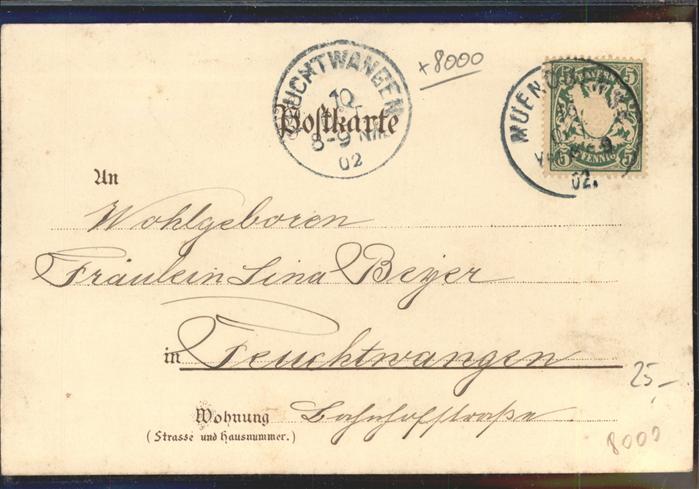 FEUCHTWANGEN
10
8-9 NM.
02
+8000
MUENCHEN
02.
5 5
PFENNIG
5 5
Postkarte
An
Wohlgeboren
Fräulein Lina Beyer
in Feuchtwangen
Wohnung Bahnhofstraße
(Strasse und Hausnummer.)
25,-
8000